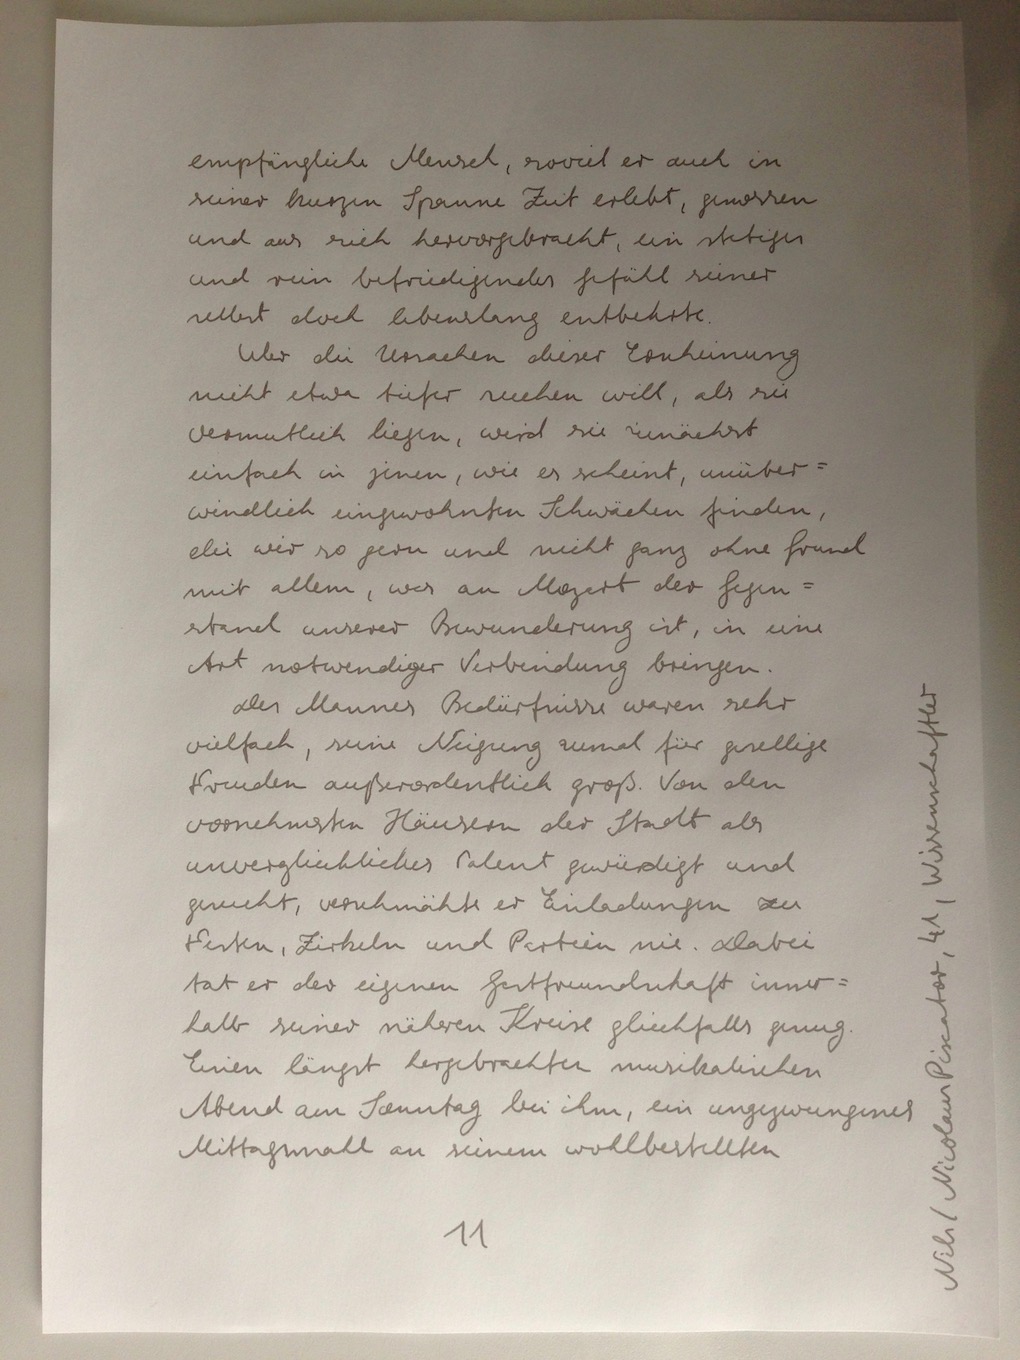 empfängliche Mensch, soviel er auch in
seiner kurzen Spanne Zeit erlebt, genossen
und aus sich hervorgebracht, ein stetiges
und rein befriedigendes Gefühl seiner
selbst doch lebenslang entbehrte.
Wer die Ursachen dieser Erscheinung
nicht etwa tiefer suchen will, als sie
vermutlich liegen, wird sie zunächst
einfach in jenen, wie es scheint, unüber=
windlich eingewohnten Schwächen finden,
die wir so gern und nicht ganz ohne Grund
mit allem, was an Mozart der Gegen=
stand unserer Bewunderung ist, in eine
Art notwendiger Verbindung bringen.
Des Mannes Bedürfnisse waren sehr
vielfach, seine Neigung zumal für gesellige
Freuden außerordentlich groß. Von den
vornehmsten Häusern der Stadt als
unvergleichliches Talent gewürdigt und
gesucht, verschmähte er Einladungen zu
Festen, Zirkeln und Partien nie. Dabei
tat er der eigenen Gastfreundschaft inner=
halb seiner näheren Kreise gleichfalls genug.
Einen längst hergebrachten musikalischen
Abend am Sonntag bei ihm, ein ungezwungenes
Mittagsmahl an seinem wohlbestellten
11
Nils / Nicolaus Piscator, 41, Wissenschaftler